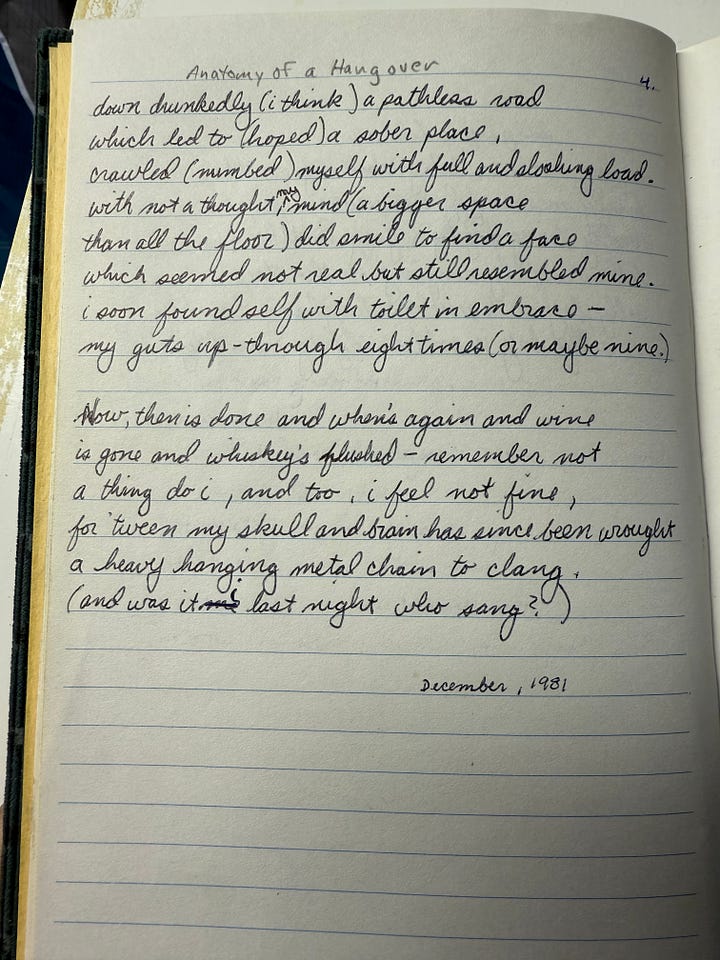 Anatomy of a Hangover
4.
down drunkedly (i think) a pathless road
which led to (hoped) a sober place,
crawled (numbed) myself with full and sloshing load.
with not a thought, my mind (a bigger space
than all the floor) did smile to find a face
which seemed not real but still resembled mine.
i soon found self with toilet in embrace –
my guts up-through eight times (or maybe nine.)
Now, then is done and when's again and wine
is gone and whuskey's flushed – remember not
a thing do i, and too, i feel not fine,
for 'tween my skull and brain has since been wrought
a heavy hanging metal chain to clang.
(and was it i last night who sang?)
December, 1981